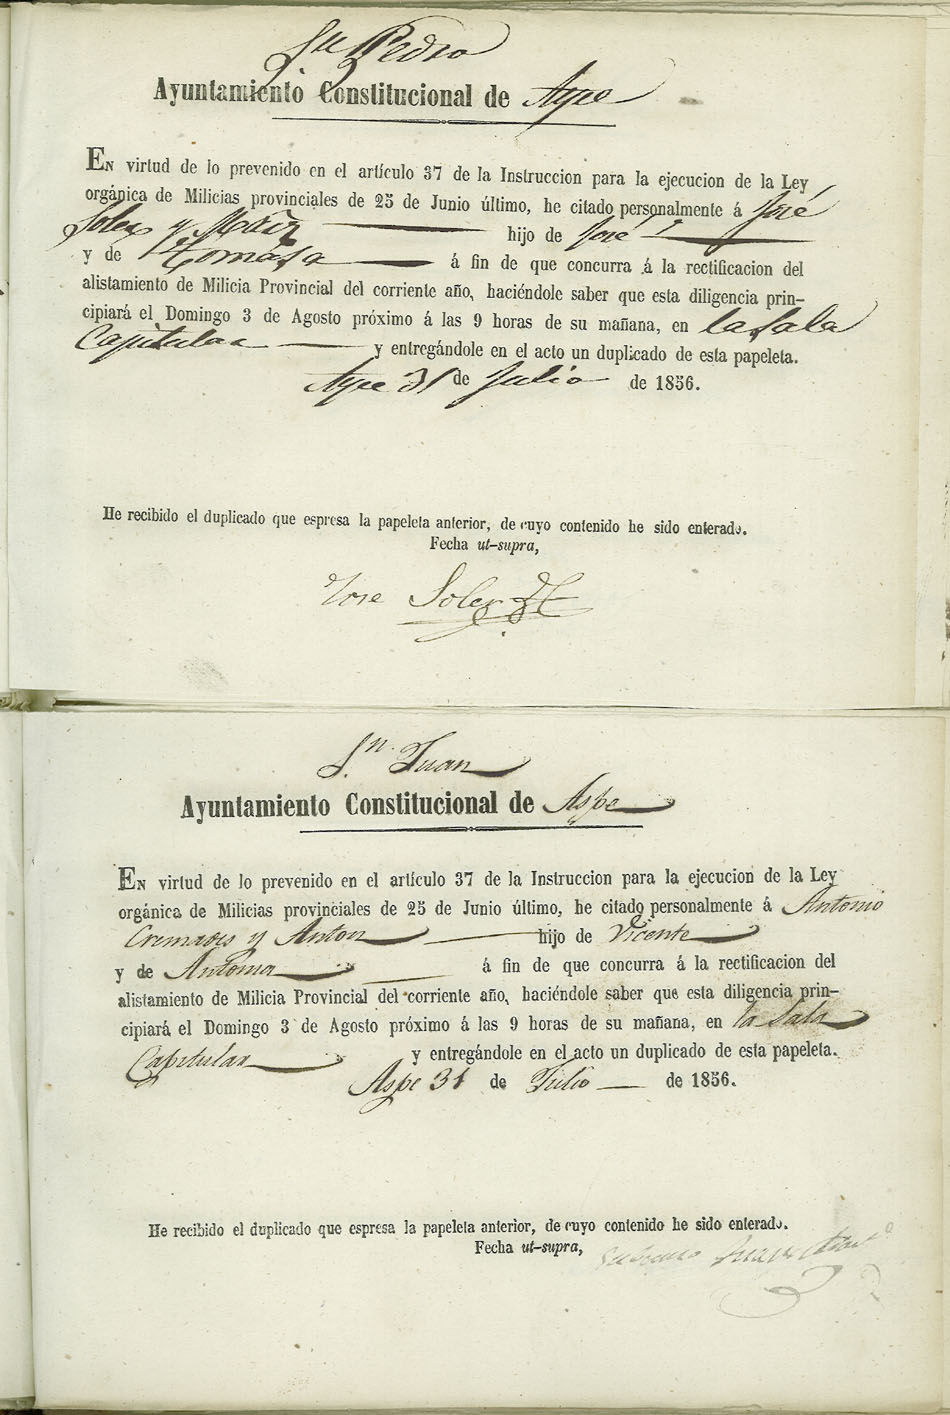 Sn Pedro
Ayuntamiento Constitucional de Aspe
EN virtud de lo prevenido en el artículo 37 de la Instruccion para la ejecucion de la Ley
orgánica de Milicias provinciales de 25 de Junio último, he citado personalmente á José
Soler y hijo de José
y de Tomasa á fin de que concurra á la rectificacion del
alistamiento de Milicia Provincial del corriente año, haciéndole saber que esta diligencia prin-
cipiará el Domingo 3 de Agosto próximo á las 9 horas de su mañana, en la Sala
Capitular y entregándole en el acto un duplicado de esta papeleta.
Aspe 31 de Julio de 1856.
He recibido el duplicado que espresa la papeleta anterior, de cuyo contenido he sido enterado.
Fecha ut-supra,
Jose Soler
Sn Juan
Ayuntamiento Constitucional de Aspe
EN virtud de lo prevenido en el artículo 37 de la Instruccion para la ejecucion de la Ley
orgánica de Milicias provinciales de 25 de Junio último, he citado personalmente á Antonio
Cremades y Anton hijo de Vicente
y de Antonia á fin de que concurra á la rectificacion del
alistamiento de Milicia Provincial del corriente año, haciéndole saber que esta diligencia prin-
cipiará el Domingo 3 de Agosto próximo á las 9 horas de su mañana, en la Sala
Capitular y entregándole en el acto un duplicado de esta papeleta.
Aspe 31 de Julio de 1856.
He recibido el duplicado que espresa la papeleta anterior, de cuyo contenido he sido enterado.
Fecha ut-supra,